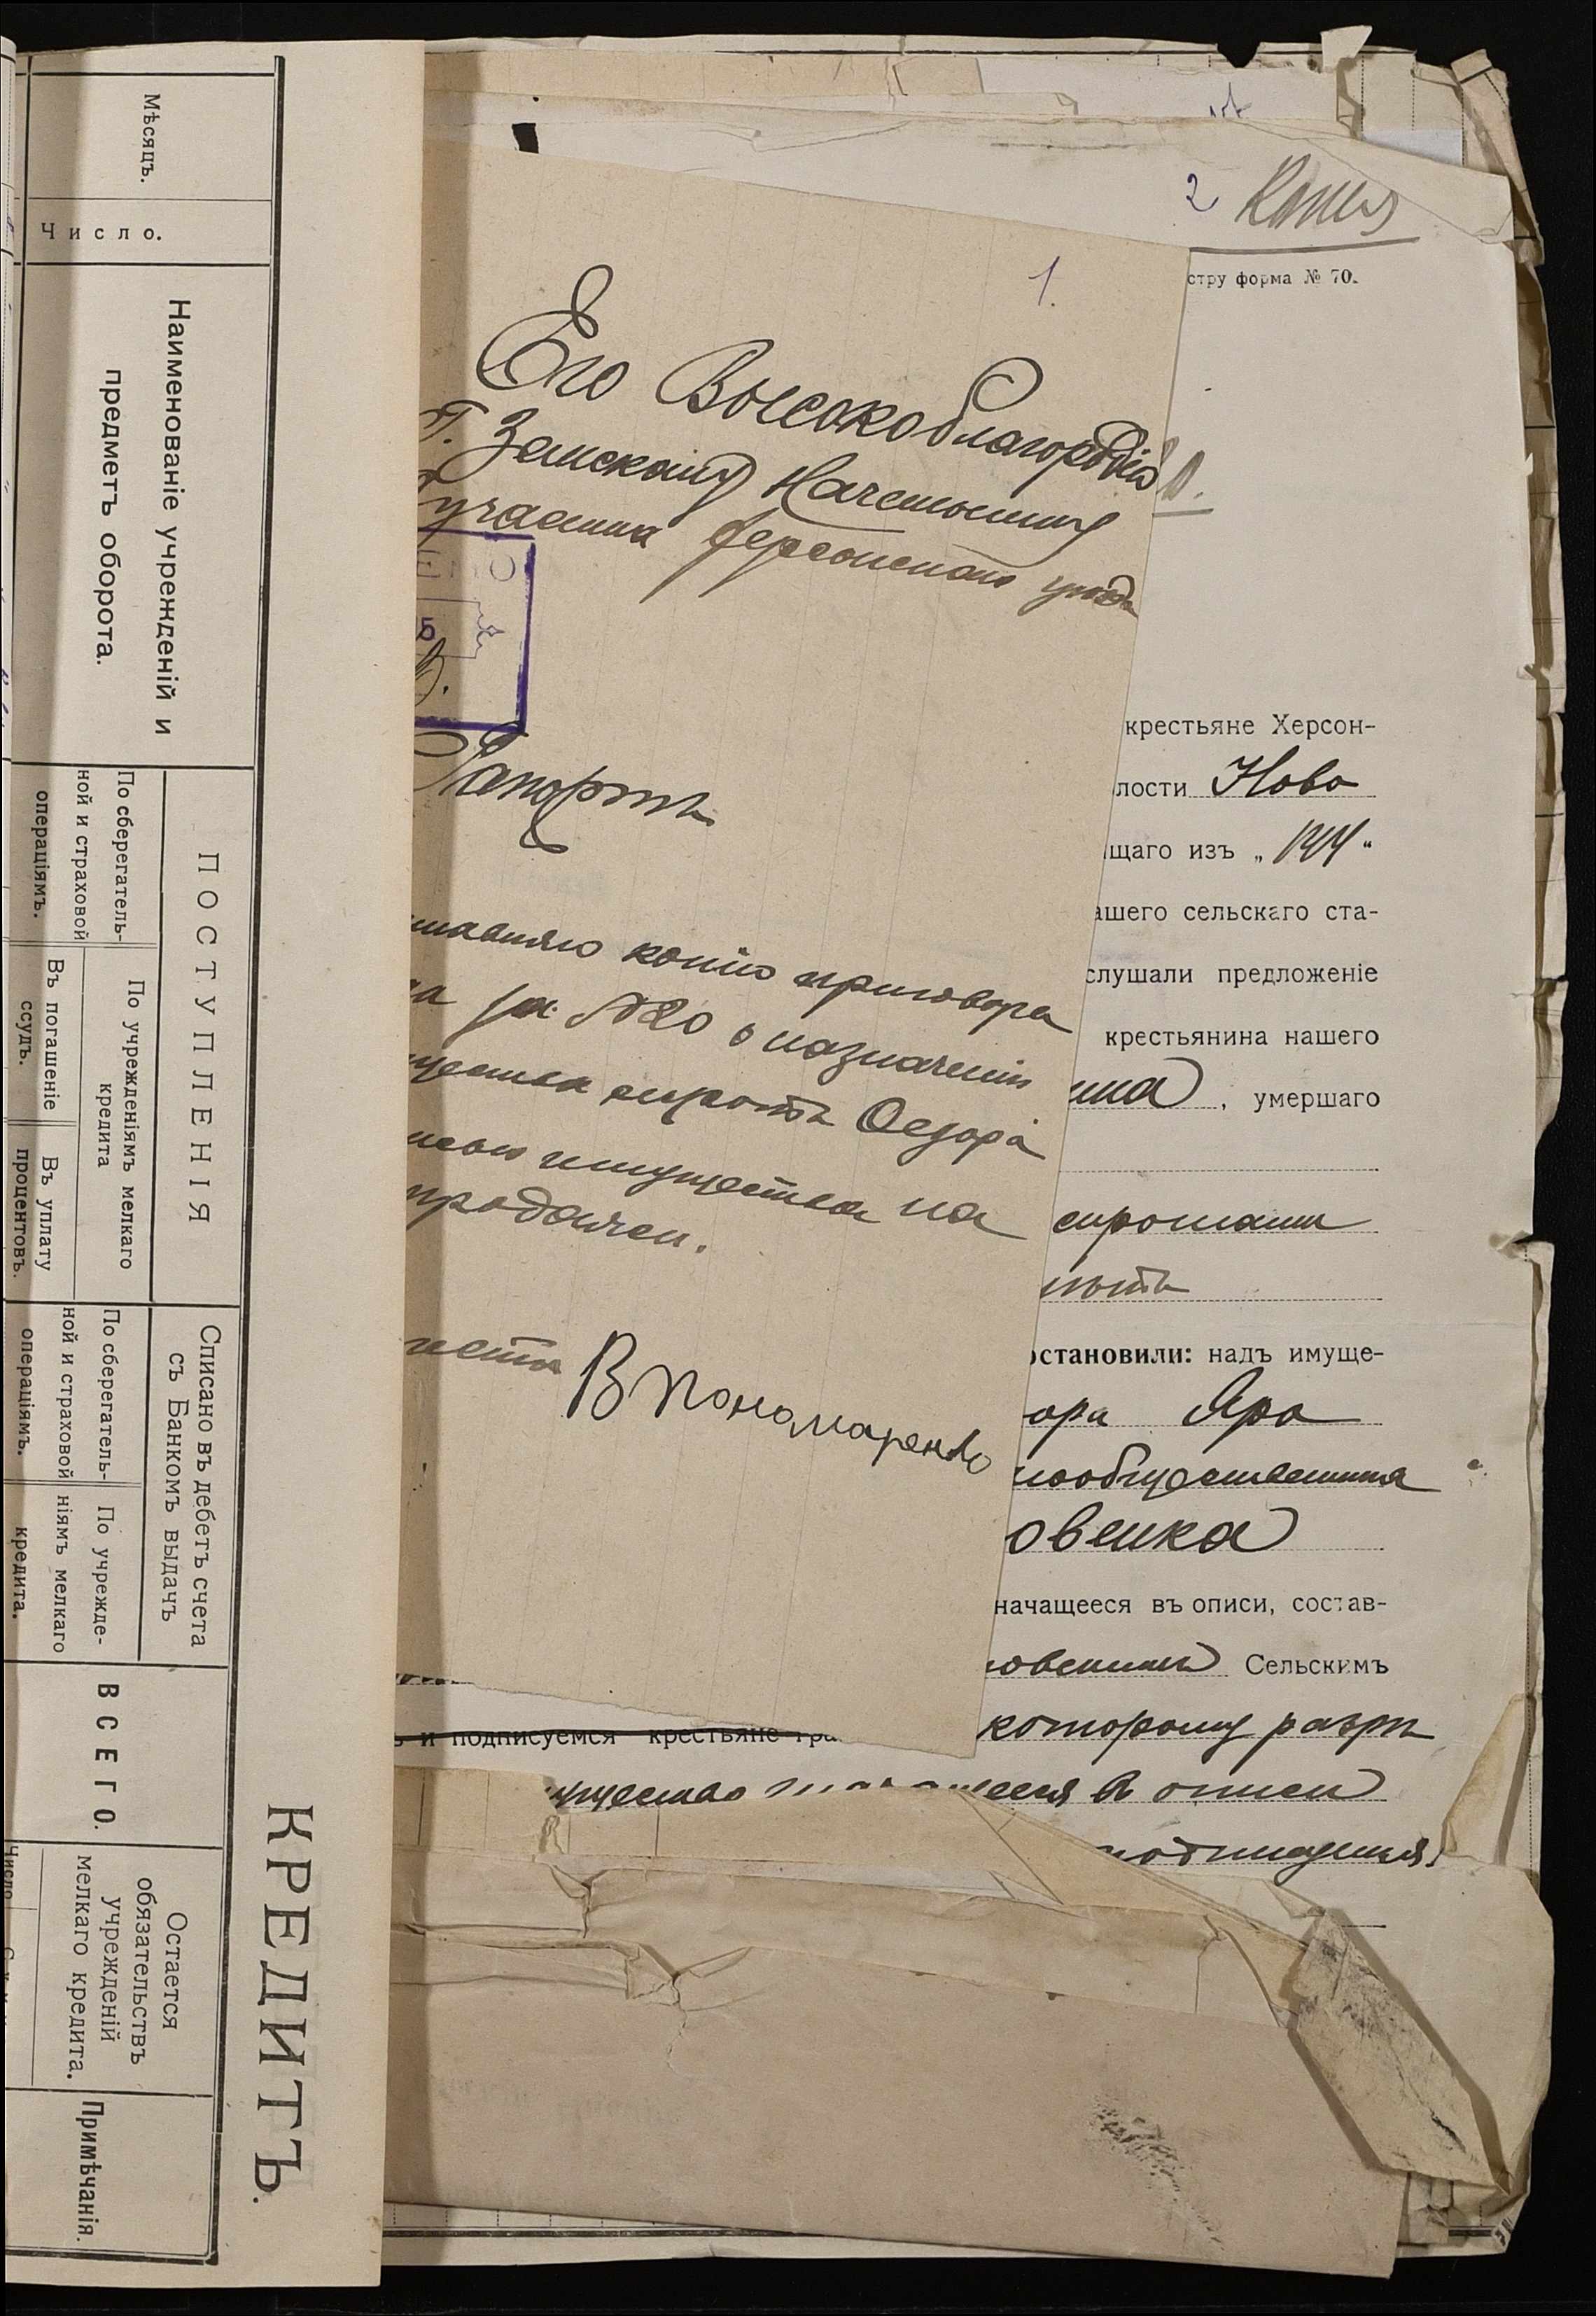 Мѣсяцъ.
Число.
Наименованіе учрежденій и
предметъ оборота.
ПОСТУПЛЕНІЯ
По сберегатель-
ной и страховой
операціямъ.
По учрежденіямъ мелкаго
кредита
Въ погашеніе
ссудъ.
Въ уплату
процентовъ.
Списано въ дебетъ счета
съ Банкомъ выдачъ
По сберегатель-
ной и страховой
операціямъ.
По учрежде-
ніямъ мелкаго
кредита.
ВСЕГО.
Остается
обязательствъ
учрежденій
мелкаго кредита.
Примѣчанія.
КРЕДИТЪ.
1.
Его Высокоблагородію
Г. Земскому Начальнику
участка Херсонскаго уѣзда
Рапортъ
копію приговора
за №20 о назначеніи
сиротъ Ѳедора
имущества на
продажи.
В Пономаренко
2 Копия
стру форма № 70.
крестьяне Херсон-
лости Ново
щаго изъ „144“
ашего сельскаго ста-
слушали предложеніе
крестьянина нашего
, умершаго
сиротами
остановили: надъ имуще-
ора Яро
овенка
начащееся въ описи, состав-
Сельскимъ
и подписуемся крестьяне гра
которому разрѣ
в описи